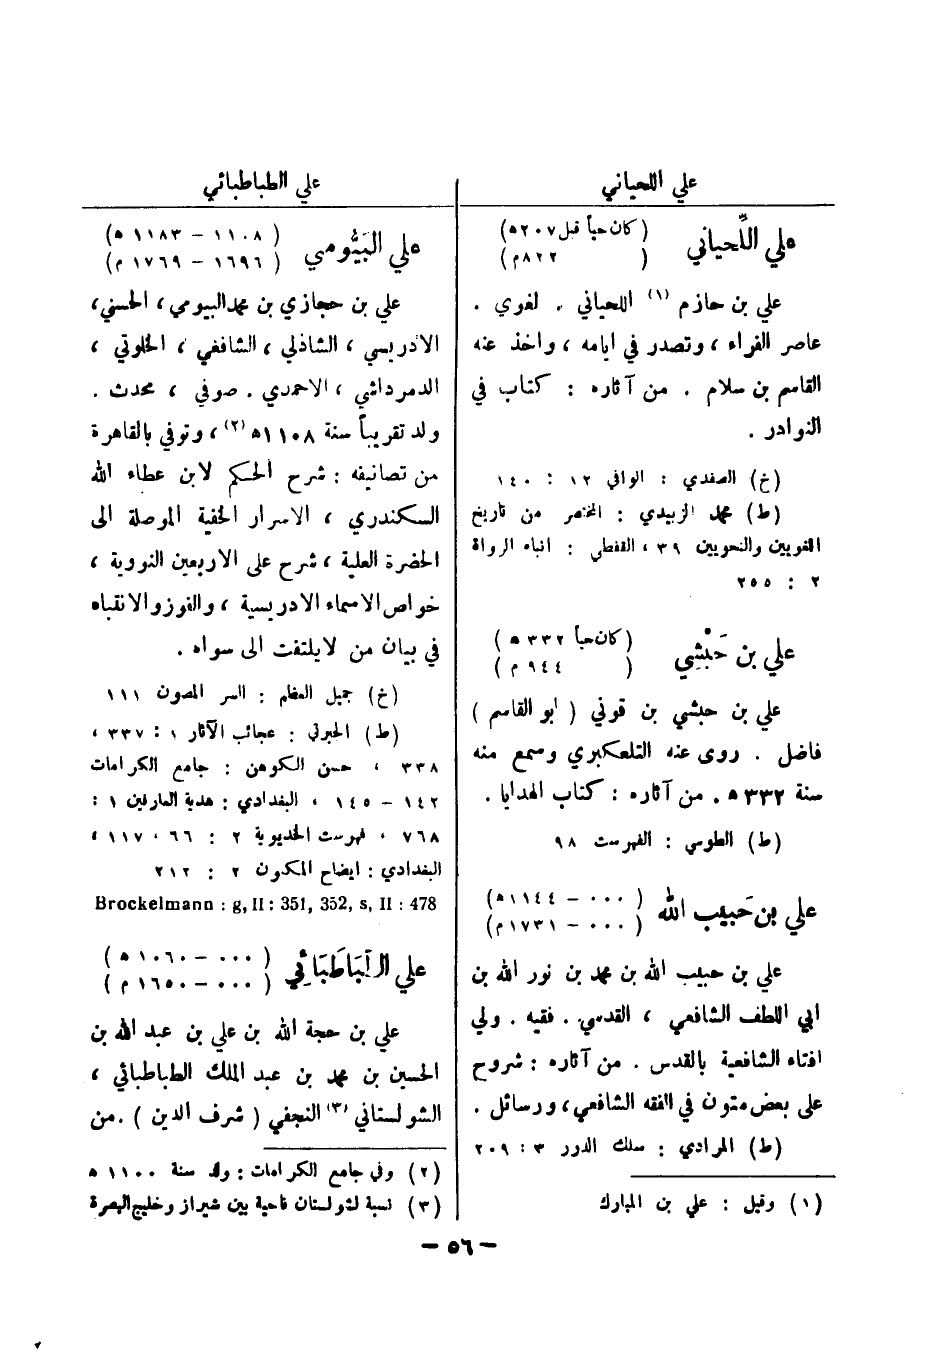 علي اللحياني
علي اللِّحياني
(كان حياً قبل ٢٠٧ ه)
(٨٢٢ م)
علي بن حازم (١) اللحياني . لغوي .
عاصر الفراء ، وتصدر في ايامه ، واخذ عنه
القاسم بن سلام . من آثاره : كتاب في
النوادر .
(خ) الصفدي : الوافي ١٢ : ١٤٠
(ط) محمد الزبيدي : المختصر من تاريخ
اللغويين والنحويين ٣٩ ، القفطي : انباه الرواة
٢ : ٢٥٥
علي بن حَبْشِي
(كان حياً ٣٣٢ ه)
(٩٤٤ م)
علي بن حبشي بن قوني ( ابو القاسم )
فاضل . روى عنه التلعكبري وسمع منه
سنة ٣٣٢ ه . من آثاره : كتاب الهدايا .
(ط) الطوسي : الفهرست ٩٨
علي بن حَبيب الله
(٠٠٠ – ١١٤٤ ه)
(٠٠٠ – ١٧٣١ م)
علي بن حبيب الله بن محمد بن نور الله بن
ابي اللطف الشافعي ، القدسي . فقيه . ولي
افتاء الشافعية بالقدس . من آثاره : شروح
على بعض متون في الفقه الشافعي ، ورسائل .
(ط) المرادي : سلك الدرر ٣ : ٢٠٩
(١) وقيل : علي بن المبارك
علي الطباطبائي
علي البَيُّومي
(١١٠٨ – ١١٨٣ ه)
(١٦٩٦ – ١٧٦٩ م)
علي بن حجازي بن محمد البيومي ، الحسني ،
الادريسي ، الشاذلي ، الشافعي ، الخلوتي ،
الدمرداشي ، الاحمدي . صوفي ، محدث .
ولد تقريباً سنة ١١٠٨ ه (٢) ، وتوفي بالقاهرة
من تصانيفه : شرح الحكم لابن عطاء الله
السكندري ، الاسرار الخفية الموصلة الى
الحضرة العلية ، شرح على الاربعين النووية ،
خواص الاسماء الادريسية ، والفوز والانتباه
في بيان من لا يلتفت الى سواه .
(خ) جميل العظم : السر المصون ١١١
(ط) الجبرتي : عجائب الآثار ١ : ٣٣٧ ،
٣٣٨ ، حسن الكوهن : جامع الكرامات
١٤٢ – ١٤٥ ، البغدادي : هدية العارفين ١ :
٧٦٨ ، فهرست الخديوية ٢ : ٦٦ ، ١١٧ ،
البغدادي : ايضاح المكنون ٢ : ٢١٢
Brockelmann : g, II : 351, 352, s, II : 478
علي الطَّبَاطَبَائِي
(٠٠٠ – ١٠٦٠ ه)
(٠٠٠ – ١٦٥٠ م)
علي بن حجة الله بن علي بن عبد الله بن
الحسين بن محمد بن عبد الملك الطباطبائي ،
الشولستاني (٣) النجفي ( شرف الدين ) . من
(٢) وفي جامع الكرامات : ولد سنة ١١٠٠ ه
(٣) نسبة لشولستان ناحية بين شيراز وخليج البصرة
– ٥٦ –